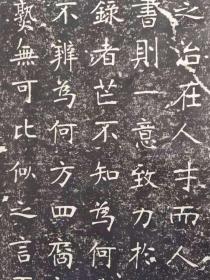 之治在人才而人
書則一意致力於
錄者芒不知為何
不辨為何方四裔
無可比似之言